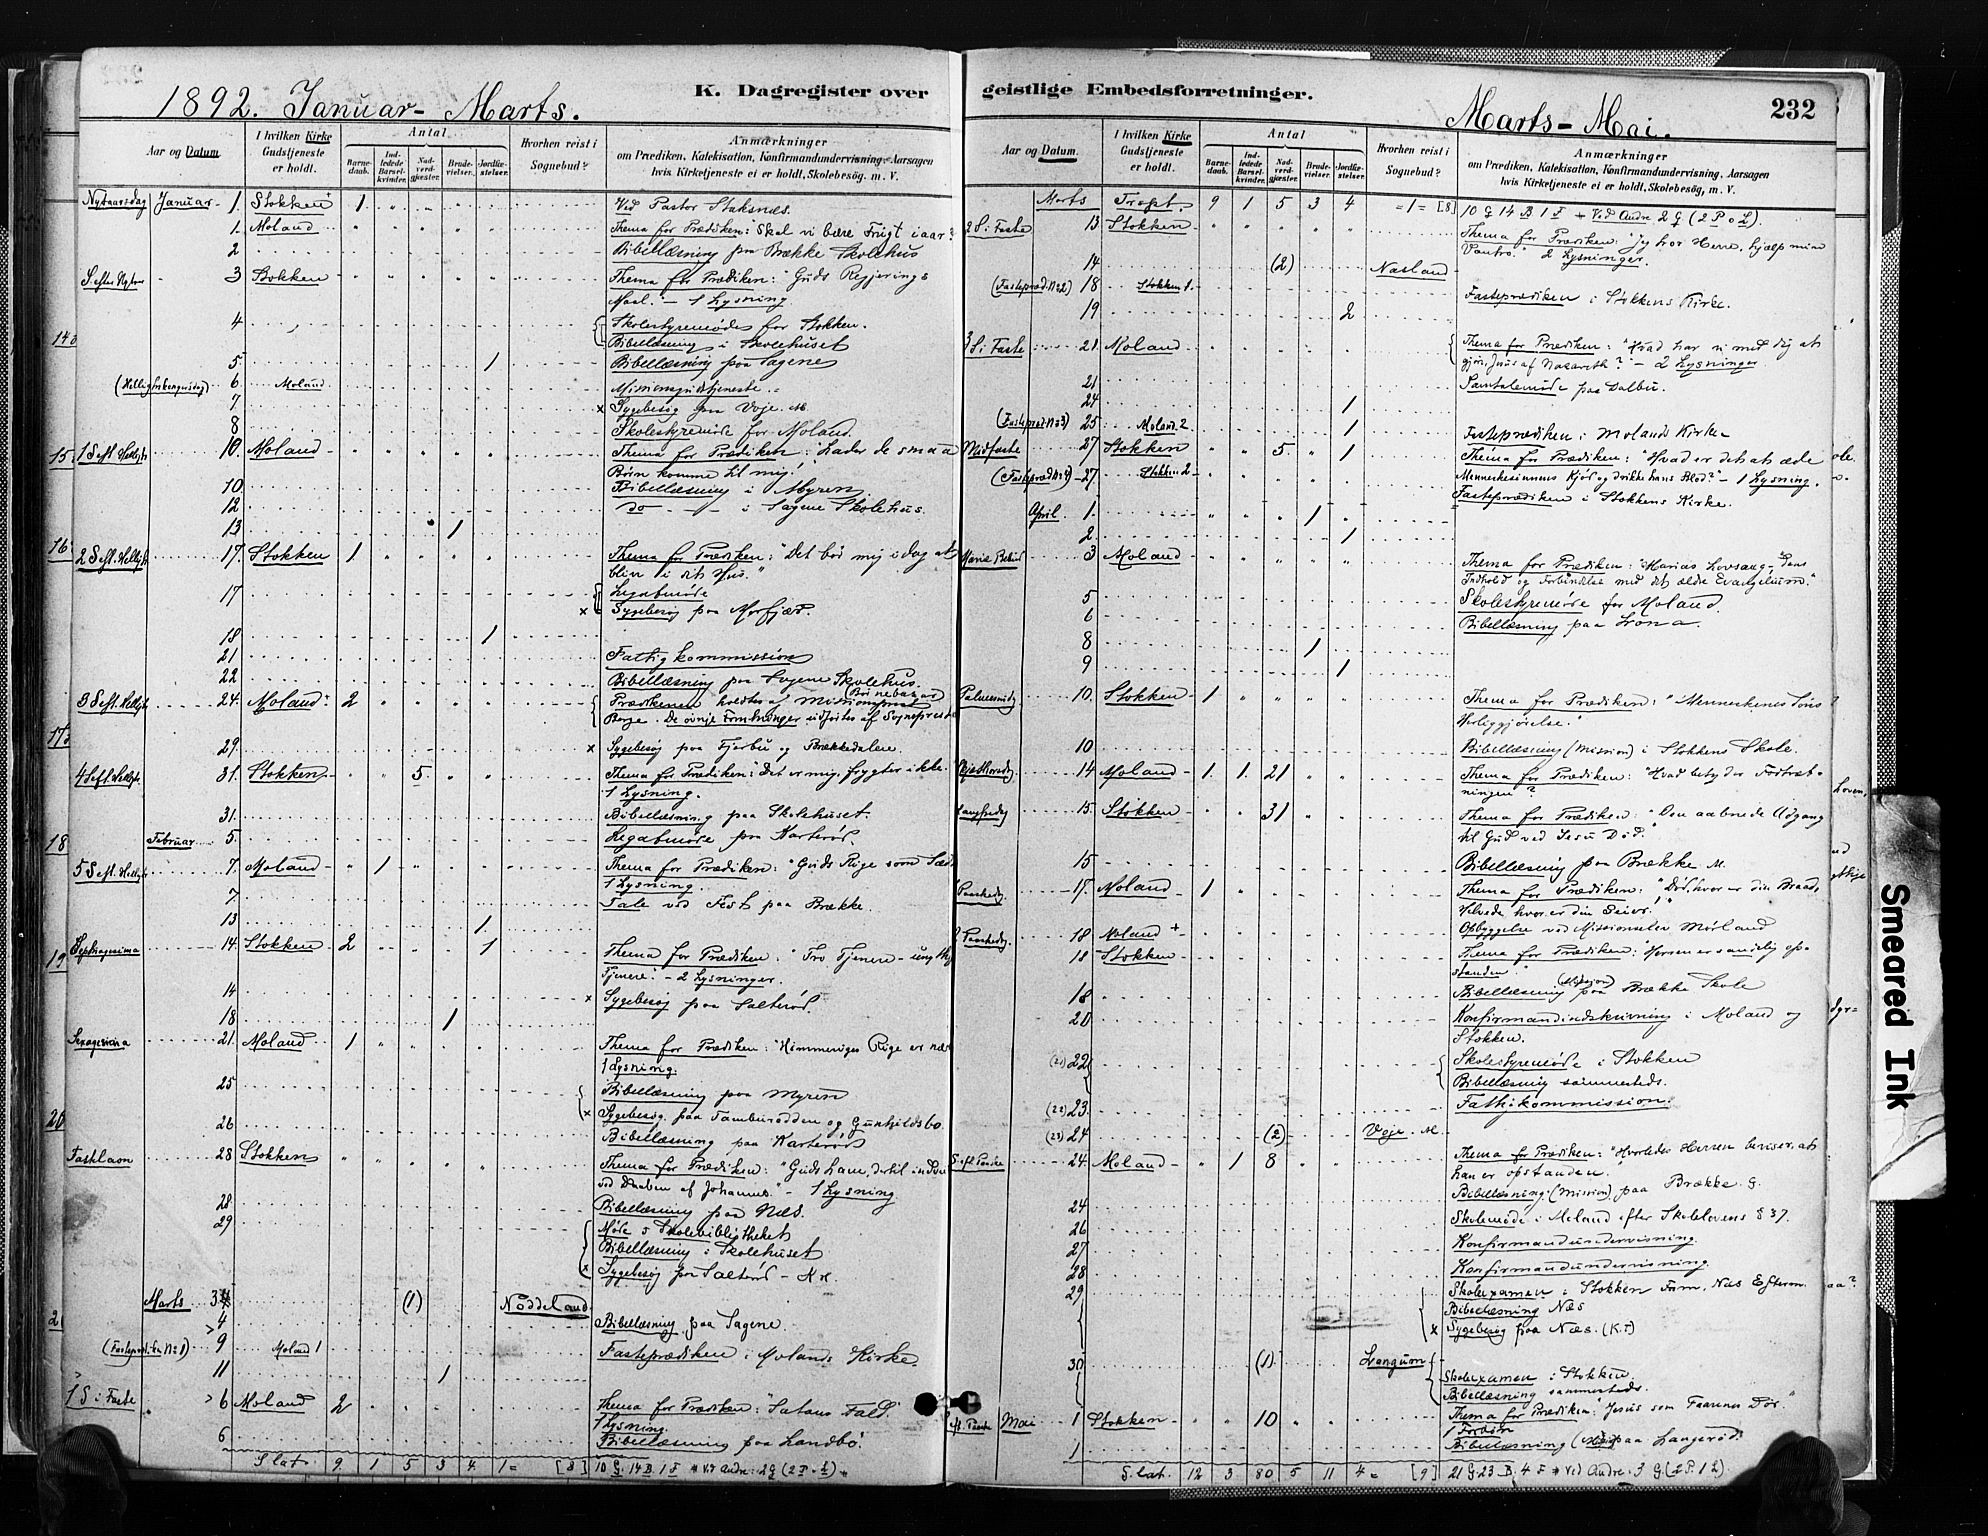 1892. Januar - Marts.
K. Dagregister over
Aar og Datum.
I hvilken Kirke Gudstjeneste er holdt.
Antal
Barnedaab.
Indledede Barselkvinder.
Nadverdgjæster.
Brudevielser.
Jordfæstelser.
Hvorhen reist i Sognebud?
Anmærkninger
om Prædiken, Katekisation, Konfirmandundervisning, Aarsagen
hvis Kirketjeneste ei er holdt, Skolebesøg, m. V.
Nytaarsdag Januar 1. Stokken 1 Ved Pastor Staksnæs.
1. Moland Thema for Prædiken: Skal vi bære Frugt i aar?
2 Bibellæsning paa Brække Skolehus
S. efter Nytaar 3 Stokken Thema for Prædiken: "Guds Regjerings
Maal." - 1 Lysning
4 Skolestyremøde for Stokken.
140
Bibellæsning i Skolehuset
5. 1 Bibellæsning paa Sagene
(Helligtrekongersdag) 6. Moland Missionsgudstjeneste
7 x Sygebesøg paa Voje. M.
8 Skolestyremøde for Moland.
15. 1 S. eft. Helligtr. 10. Moland Thema for Prædiken: Lader de smaa
Børn komme til mig!
10 Bibellæsning i Myren
12 do - i Sagene Skolehus.
13 1
16 2 S. eft. Helligtr. 17. Stokken 1 Thema for Prædiken: "Det bør mig i dag at
bliv i dit Hus."
17 Legatmøde
x Sygebesøg paa Morfjær.
18 1
21 Fattigkommission
22 Bibellæsning paa Sagene Skolehus.
(Børnebazar
3 S. eft. Helligtr. 24. Moland 2 Prædikenen holdtes af Missionsprest
Borge. De øvrige Forretninger udførtes af Sogneprest
17
29. x Sygebesøg paa Fjerbu og Brækkedalen.
4 S. eft. Helligtr. 31. Stokken 5 Thema for Prædiken: "Det er mig, frygter ikke.
1 Lysning.
31. Bibellæsning paa Skolehuset.
18 Februar 5. Legatmøde paa Narterød.
5 S. eft. Helligtr. 7. Moland 1 Thema for Prædiken: "Guds Rige som Sæd
1 Lysning.
7 Tale ved Fest paa Brække.
13 1
19 Septuagesima 14. Stokken 2 1 Thema for Prædiken: "Tro Tjenere - unyttige
Tjenere" - 2 Lysninger.
14 x Sygebesøg paa Salterød.
18 1
Sexagesima 21. Moland 1 Thema for Prædiken: "Himmeriges Rige er nær
1 Lysning.
25 Bibellæsning paa Myren
20
26 x Sygebesøg paa Tamburodden og Gunhildsbo.
Bibellæsning paa Narterød
Fastelavn 28 Stokken Thema for Prædiken: "Guds Lam, dertil indviet
ved Daaben af Johannes." - 1 Lysning
28 Bibellæsning paa Næs.
29 Møde i Skolebibliotheket
Bibellæsning i Skolehuset
x Sygebesøg paa Salterød
Marts 3 (1) Noddeland
2
4 Bibellæsning paa Sagene
(Fasteprædiken No 1) 9 Moland 1 Fasteprædiken i Molands Kirke.
11 1
1 S. i Faste 6 Moland 2 Thema for Prædiken: "Satans Fald."
1 Lysning.
6 Bibellæsning paa Landbø.
S lat. 9 1 5 3 4 1 = [8] 10 G. 14 B. 1 F. * Ved Andre: 2 G (2 P. L)
geistlige Embedsforretninger.
232
Marts - Mai.
Aar og Datum.
I hvilken Kirke Gudstjeneste er holdt.
Antal
Barnedaab.
Indledede Barselkvinder.
Nadverdgjæster.
Brudevielser.
Jordfæstelser.
Hvorhen reist i Sognebud?
Anmærkninger
om Prædiken, Katekisation, Konfirmandundervisning, Aarsagen
hvis Kirketjeneste ei er holdt, Skolebesøg, m. V.
Marts Trspt. 9 1 5 3 4 = 1 = [8] 10 G 14 B 1 F * Ved Andre 2 G (2 P o L).
2 S. i Faste 13 Stokken Thema for Prædiken: "Jeg tror Herre, hjælp min
Vantro." 2 Lysninger.
14 (2) Næsland
(Fastepræd. No 2) 18 Stokken 1. Fasteprædiken i Stokkens Kirke.
19 2
3 S. i Faste 21 Moland Thema for Prædiken: "Hvad har vi med dig at
gjøre, Jesus af Nazareth?" - 2 Lysninger
21 Samtalemøde paa Dalbu.
24 1
(Fastepræd. No 3) 25 Moland 2 1 Fasteprædiken i Molands Kirke
Midfaste 27 Stokken 5 1 Thema for Prædiken: "Hvad er det at æde
Menneskesønnens Kjød og drikke hans Blod?" - 1 Lysning.
(Fastepræd. No 4) 27 Stokken 2 Fasteprædiken i Stokkens Kirke.
April 1. 1
2. 1
Mariæ Bebud. 3 Moland Thema for Prædiken: "Marias Lovsang - Dens
Indhold og Forbindelse med det ældre Evangelium."
5 Skolestyremøde for Moland
6 Bibellæsning paa Lona.
8 1
9 1
Palmesøndag 10. Stokken 1 Thema for Prædiken: "Menneskenes Søns
Herliggjørelse."
10 Bibellæsning (Mission) i Stokkens Skole.
Skjærtorsdag 14 Moland 1. 1. 21 Thema for Prædiken: "Hvad betyder Fodtvætningen?
Langfredag 15. Stokken 31 Thema for Prædiken: "Den aabnede Adgang
til Gud ved Jesu Død."
15 Bibellæsning paa Brække M.
Paaskedag 17. Moland 1 Thema for Prædiken: "Død, hvor er din Braad,
Helvede hvor er din Seier!"
2 Paaskedag. 18 Moland + Opbyggelse ved Missionselev Mørland
18 Stokken Thema for Prædiken: "Herren er sandelig opstanden."
18 Bibellæsning (Mission) paa Brække Skole
20 Konfirmandindskrivning i Moland og
Stokken.
(21) 22 Skolestyremøde i Stokken
Bibellæsning sammesteds.
(22) 23. Fattikommission.
(23) 24 (2) Voje. M.
S. eft. Paaske 24. Moland 1 8 Thema for Prædiken: "Hvorledes Herren beviser, at
han er opstanden."
24 Bibellæsning (Mission) paa Brække G.
26 Skolemøde i Moland efter Skolelovens § 37.
27 Konfirmandundervisning.
28 Konfirmandundervisning.
29 Skolexamen i Stokken Form, Næs Efterm.
Bibellæsning Næs
x Sygebesøg paa Næs. (K.T)
30 (1) Langum
Skolexamen i Stokken.
Bibellæsning sammesteds.
eft. Paaske Mai 1 Stokken 10 Thema for Prædiken: Jesus som Faarenes Dør"
1 Fordm
1 Bibellæsning paa Langerød.
S. lat. 12 3 80 5 11 4 = [9] 21 G. 23 B. 4 F * Ved Andre: 3 G. (2 P. 1 L)
Smeared Ink